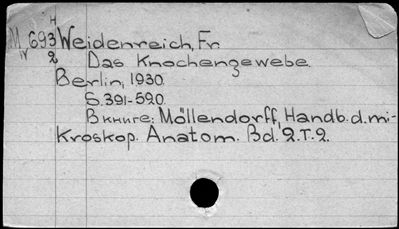 H
M 693 Weidenreich, Fr.
IV 2 Das Knochengewebe.
Berlin, 1930.
S. 391-520.
В книге: Möllendorff, Handb. d. mi-
kroskop. Anatom. Bd. 2. T. 2.